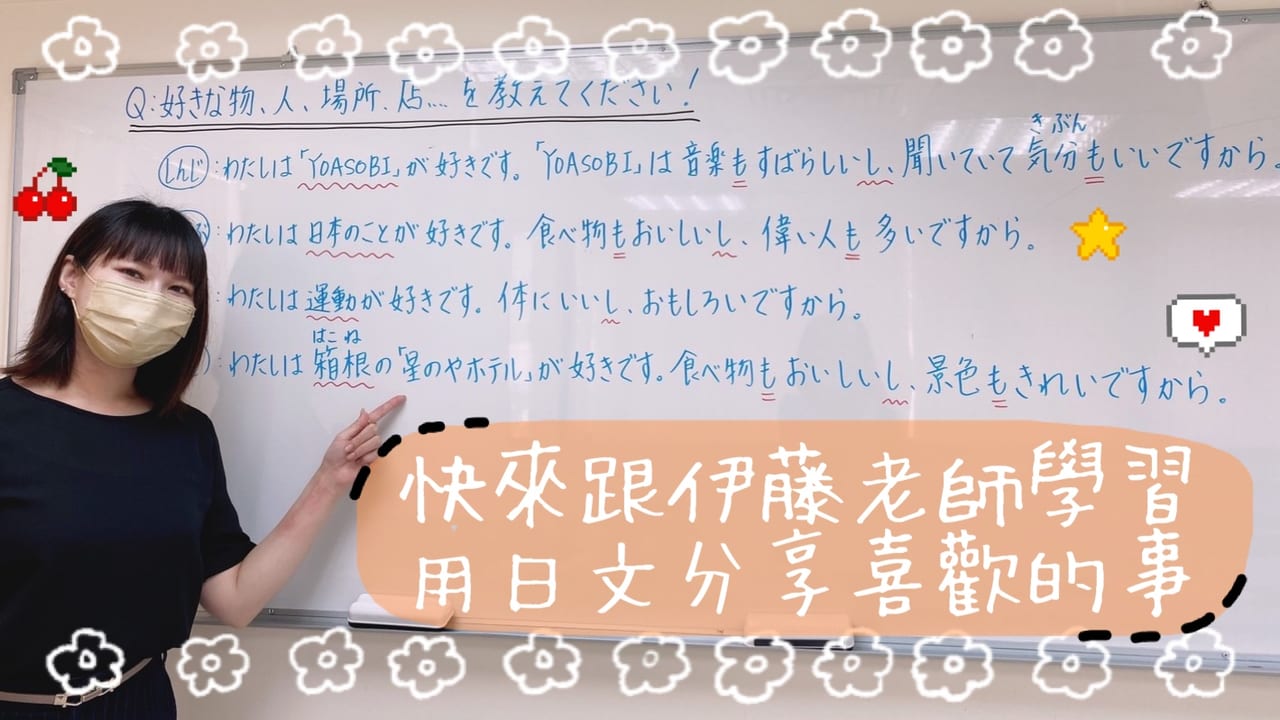 Q:好きな物、人、場所、店…を教えてください!
きぶん
しんじ:わたしは「YOASOBI」が好きです。「YOASOBI」は音楽もすばらしいし、聞いていて気分もいいですから
:わたしは日本のことが好きです。食べ物もおいしいし、偉い人も多いですから。
:わたしは運動が好きです。体にいいし、おもしろいですから。
はこね
:わたしは箱根の「星のやホテル」が好きです。食べ物もおいしいし、景色もきれいですから。
快來跟伊藤老師學習
用日文分享喜歡的事